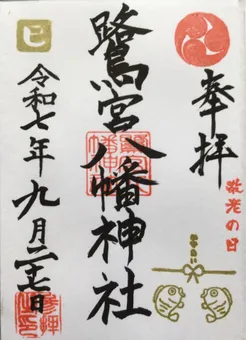 奉拝
敬老の日
鷺宮八幡神社
巳
令和七年九月二七日
参拝